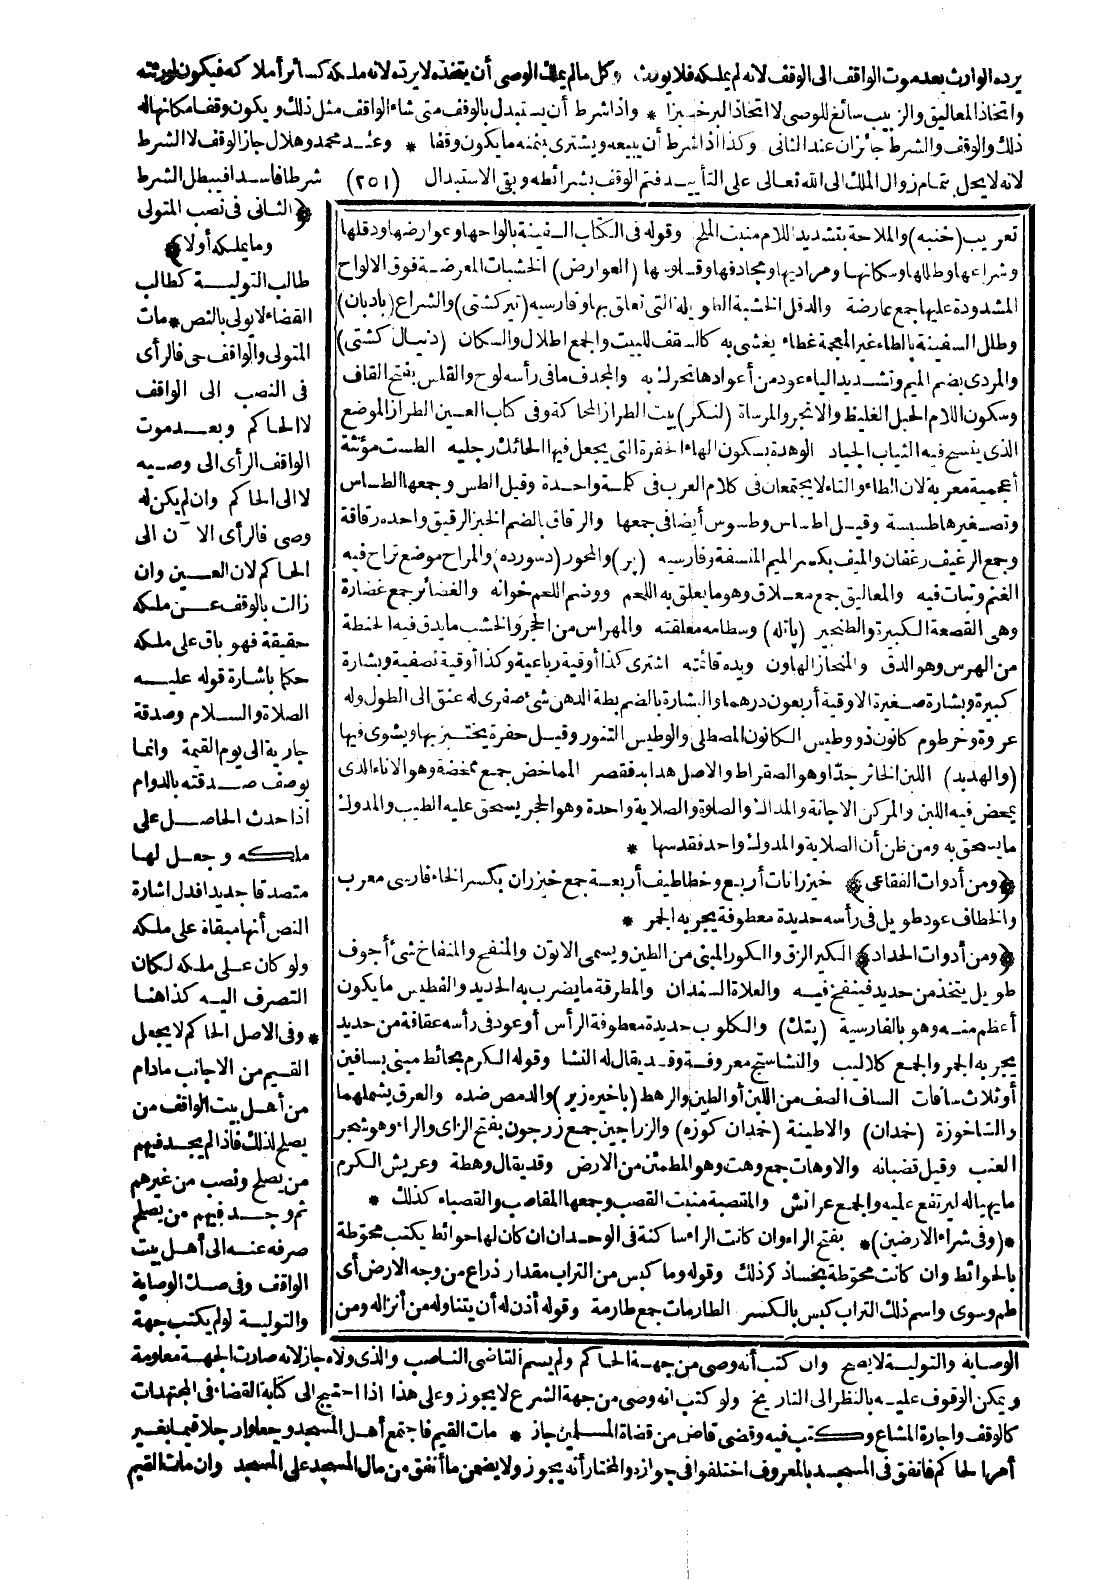 يرده الوارث بعد موت الواقف الى الوقف لانه لم يملكه فلا يورث * كل مالم يملك الوصى أن يتخذه لا يرده لانه ملكه كسائر أملاكه فيكون لورثته
واتخاذ المعاليق والزبيب سائغ للوصى لا اتخاذ البرخبزا * واذا شرط أن يستبدل بالوقف متى شاء الواقف مثل ذلك ويكون وقفا مكانه له
ذلك والوقف والشرط جائزان عند الثانى وكذا اذا شرط أن يبيعه ويشترى بثمنه ما يكون وقفا * وعند محمد وهلال جاز الوقف لا الشرط
لانه لا يحل بتمام زوال الملك الى الله تعالى على التأبيد فتم الوقف بشرائطه وبقى الاستبدال (٢٥١) شرطا فاسدا فيبطل الشرط
﴿الثانى فى نصب المتولى
وما يملكه أولا﴾
طالب التولية كطالب
القضاء لا يولى بالنص * مات
المتولى والواقف حى فالرأى
فى النصب الى الواقف
لا الحاكم وبعد موت
الواقف الرأى الى وصيه
لا الى الحاكم وان لم يكن له
وصى فالرأى الآن الى
الحاكم لان العين وان
زالت بالوقف عن ملكه
حقيقة فهو باق على ملكه
حكما باشارة قوله عليه
الصلاة والسلام وصدقة
جارية الى يوم القيمة وانما
يوصف صدقته بالدوام
اذا حدث الحاصل على
ملكه وجعل لها
متصدقا جديدا فدل اشارة
النص أنها مبقاة على ملكه
ولو كان على ملكه لكان
التصرف اليه كذا هنا
* وفى الاصل الحاكم لا يجعل
القيم من الاجانب مادام
من أهل بيت الواقف من
يصلح لذلك فاذا لم يجد فيهم
من يصلح ونصب من غيرهم
ثم وجد فيهم من يصلح
صرفه عنه الى أهل بيت
الواقف وفى صك الوصاية
والتولية لو لم يكتب جهة
تعريب (خنبه) والملاحة بتشديد اللام منبت الملح وقوله فى الكتاب السفينة بالواحها وعوارضها ودقلها
وشراعها وطللها وسكانها ومراديها ومجادفها وقلوسها (العوارض) الخشبات المعرضة فوق الالواح
المشدودة عليها جمع عارضة والدقل الخشبة الطويلة التى تعلق بها وفارسيه (تيركشتى) والشراع (بادبان)
وطلل السفينة بالطاء غير المعجمة غطاء يغشى به كالسقف للبيت والجمع اطلال والسكان (دنبال كشتى)
والمردى بضم الميم وتشديد الياء عود من أعوادها تحرك به والمجدف مافى رأسه لوح والقلس بفتح القاف
وسكون اللام الحبل الغليظ والانجر والمرساة (لنكر) بيت الطراز المحاكة وفى كتاب العين الطراز الموضع
الذى ينسج فيه الثياب الجياد الوهدة بسكون الهاء الحفرة التى يجعل فيها الحائك رجليه الطست مؤنثة
أعجمية معربة لان الطاء والتاء لا يجتمعان فى كلام العرب فى كلمة واحدة وقيل الطس وجمعها الطساس
وتصغيرها طسيسة وقيل اطساس وطسوس أيضا فى جمعها والرقاق بالضم الخبز الرقيق واحده رقاقة
وجمع الرغيف رغفان والميف بكسر الميم المنسفة وفارسيه (پر) والمحور (دسورده) والمراح موضع تراح فيه
الغنم وتبات فيه والمعاليق جمع معلاق وهو ما يعلق به اللحم ووضم اللحم خوانه والغضائر جمع غضارة
وهى القصعة الكبيرة والطنجير (پاتله) وسطامه معلقته والمهراس من الحجر والخشب ما يدق فيه الحنطة
من الهرس وهو الدق والمنحاز الهاون ويده قائمته اشترى كذا أوقية رباعية وكذا أوقية نصفية وبشارة
كبيرة وبشارة صغيرة الاوقية أربعون درهما والبشارة بالضم بطة الدهن شئ صفرى له عنق الى الطول وله
عروة وخرطوم كانون ذو وطيس الكانون المصطلى والوطيس التنور وقيل حفرة يختبز بها ويشوى فيها
(والهديد) اللبن الخاثر جدا وهو الصقراط والاصل هدابد فقصر المماخض جمع ممخضة وهو الاناء الذى
يمخض فيه اللبن والمركن الاجانة والمداك والصلوة والصلاية واحدة وهو الحجر يسحق عليه الطيب والمدوك
ما يسحق به ومن ظن أن الصلاية والمدوك واحد فقد سها *
﴿ومن أدوات الفقاعى﴾ خيزرانات أربع وخطاطيف أربعة جمع خيزران بكسر الخاء فارسى معرب
والخطاف عود طويل فى رأسه حديدة معطوفة يجر به الجمر *
﴿ومن أدوات الحداد﴾ الكير الزق والكور المبنى من الطين ويسمى الاتون والمنفخ والمنفاخ شئ أجوف
طويل يتخذ من حديد فينفخ فيه والعلاة السندان والمطرقة ما يضرب به الحديد والفطيس ما يكون
أعظم منه وهو بالفارسية (پتك) والكلوب حديدة معطوفة الرأس أو عود فى رأسه عقافة من حديد
يجر به الجمر والجمع كلاليب والنشاستج معروفة وقد يقال له النشا وقوله الكرم بحائط مبنى بسافين
أو ثلاث سافات الساف الصف من اللبن أو الطين والرهط (باخيره زير) والدمص ضده والعرق يشملهما
والتاخوزة (خمدان) والاطينة (خمدان كوزه) والزراجين جمع زرجون بفتح الزاى والراء وهو شجر
العنب وقيل قضبانه والاوهات جمع وهت وهو المطمئن من الارض وقد يقال وهطة وعريش الكرم
ما يهيا له ليرتفع عليه والجمع عرائش والمقصبة منبت القصب وجمعها المقاصب والقصباء كذلك *
*(وفى شراء الارضين)* بفتح الراء وان كانت الراء ساكنة فى الوحدان ان كان لها حوائط يكتب محوّطة
بالحوائط وان كانت محوّطة بخساذ كر ذلك وقوله وما كبس من التراب مقدار ذراع من وجه الارض أى
طم وسوى واسم ذلك التراب كبس بالكسر الطارمات جمع طارمة وقوله أذن له أن يتناوله من أنزاله ومن
الوصاية والتولية لا يصح وان كتب أنه وصى من جهة الحاكم ولم يسم القاضى الناصب والذى ولاه جاز لانه صارت الجهة معلومة
ويمكن الوقوف عليه بالنظر الى التاريخ ولو كتب انه وصى من جهة الشرع لا يجوز وعلى هذا اذا احتيج الى كتابة القضاء فى المجتهدات
كالوقف واجارة المشاع وكتب فيه وقضى قاض من قضاة المسلمين جاز * مات القيم فاجتمع أهل المسجد وجعلوا رجلا قيما بغير
أمر الحاكم فانفق فى المسجد بالمعروف اختلفوا فى جوازه والمختار أنه يجوز ولا يضمن ما أنفق من مال المسجد على المسجد وان مات القيم